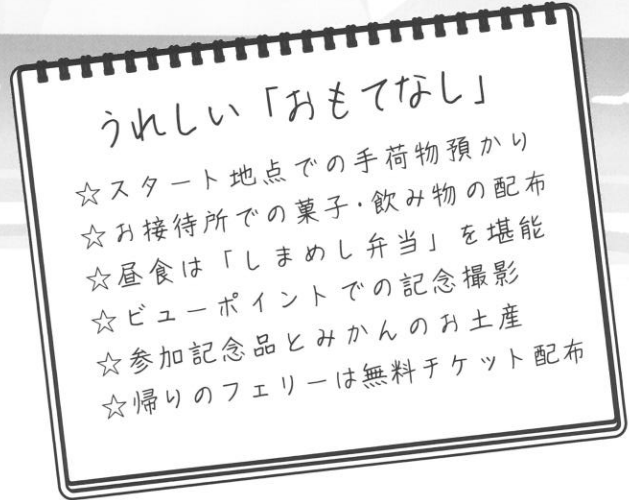 うれしい「おもてなし」
☆スタート地点での手荷物預かり
☆お接待所での菓子・飲み物の配布
☆昼食は「しまめし弁当」を堪能
☆ビューポイントでの記念撮影
☆参加記念品とみかんのお土産
☆帰りのフェリーは無料チケット配布